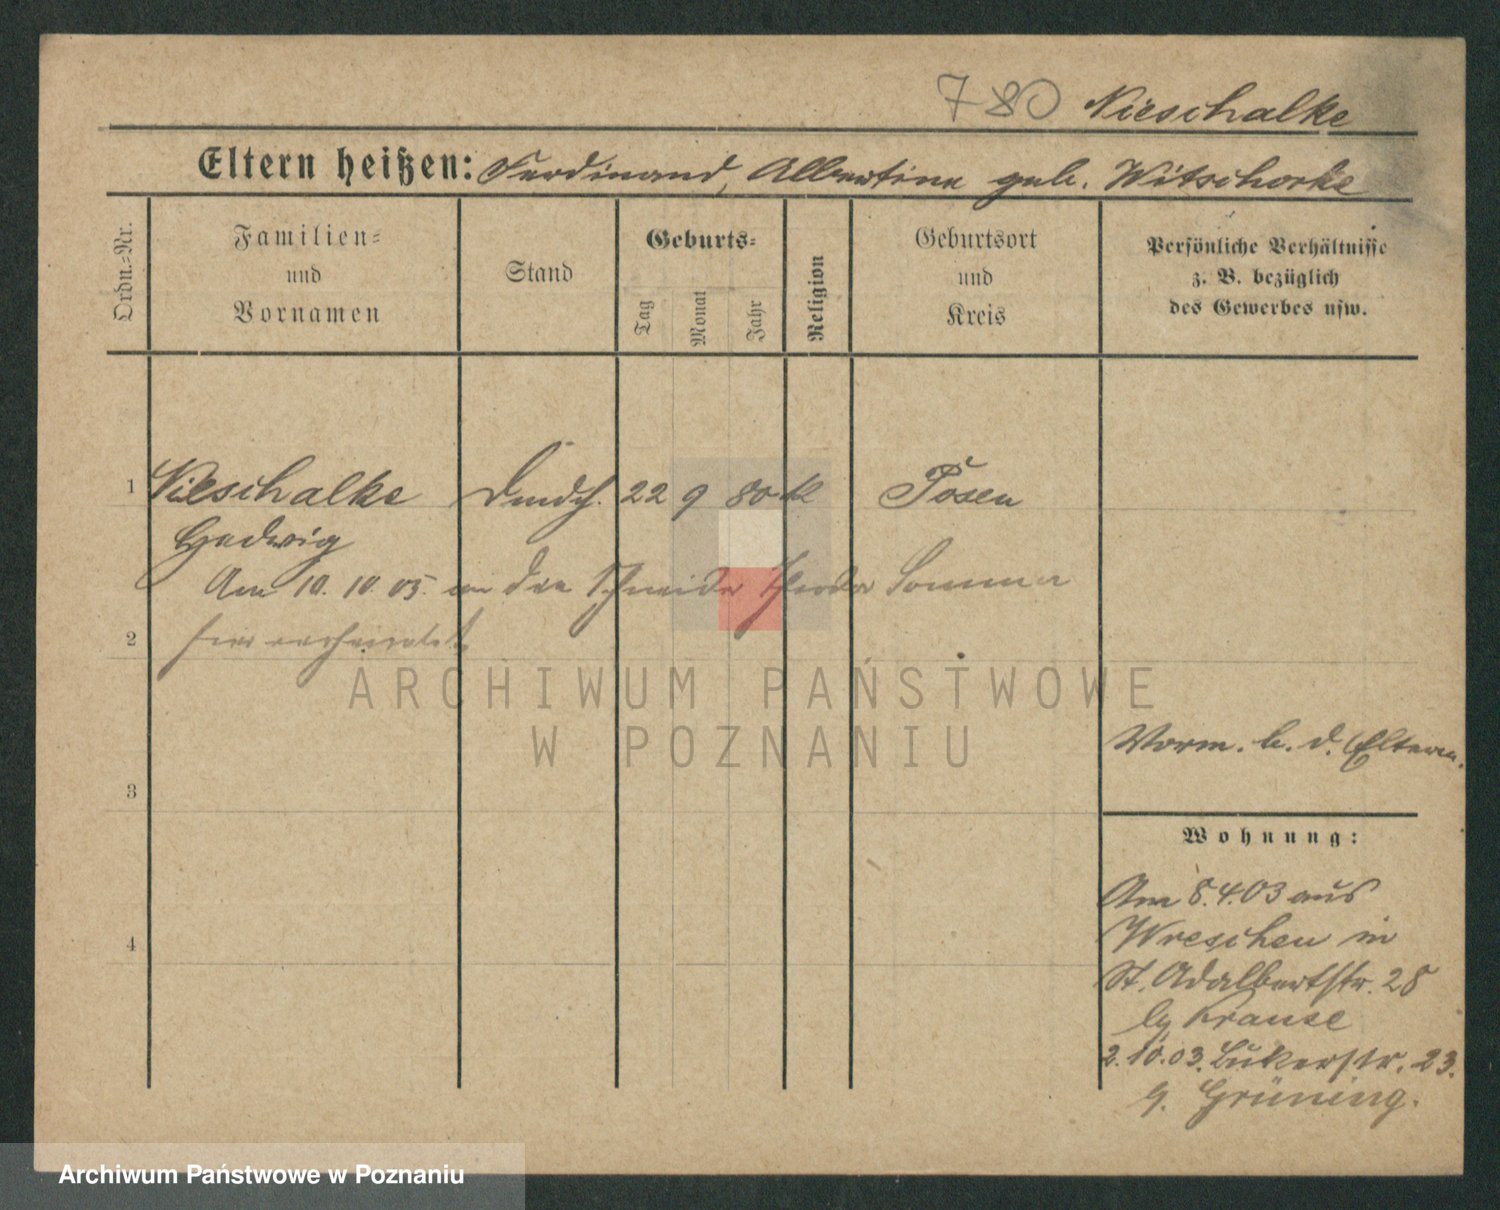 780 Nieschalke
Eltern heißen: Ferdinand, Albertine geb. Witschorke
Ordn.-Nr.
Familien-
und
Vornamen
Stand
Geburts-
Tag
Monat
Jahr
Religion
Geburtsort
und
Kreis
Persönliche Verhältnisse
z. B. bezüglich
des Gewerbes usw.
1 Nieschalke 22 9 80 k Posen
Hedwig
Am 10. 10. 05. an den Schneider Theodor Sommer
2 hier verheiratet
ARCHIWUM PAŃSTWOWE
W POZNANIU
Vorm. b. d. Eltern.
3
Wohnung:
Am 8.4.03 aus
Wreschen in
4
St. Adalbertstr. 28
Krause
2.10.03. Bukerstr. 23.
Grüning.
Archiwum Państwowe w Poznaniu